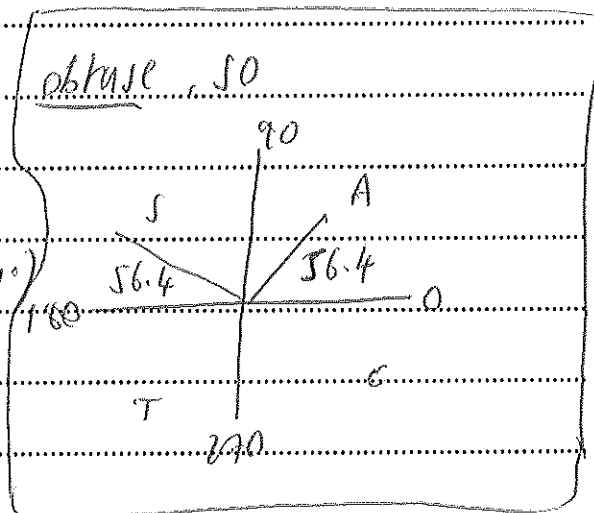 obtuse, so
90
S A
56.4 56.4
°)
180 0
T C
270